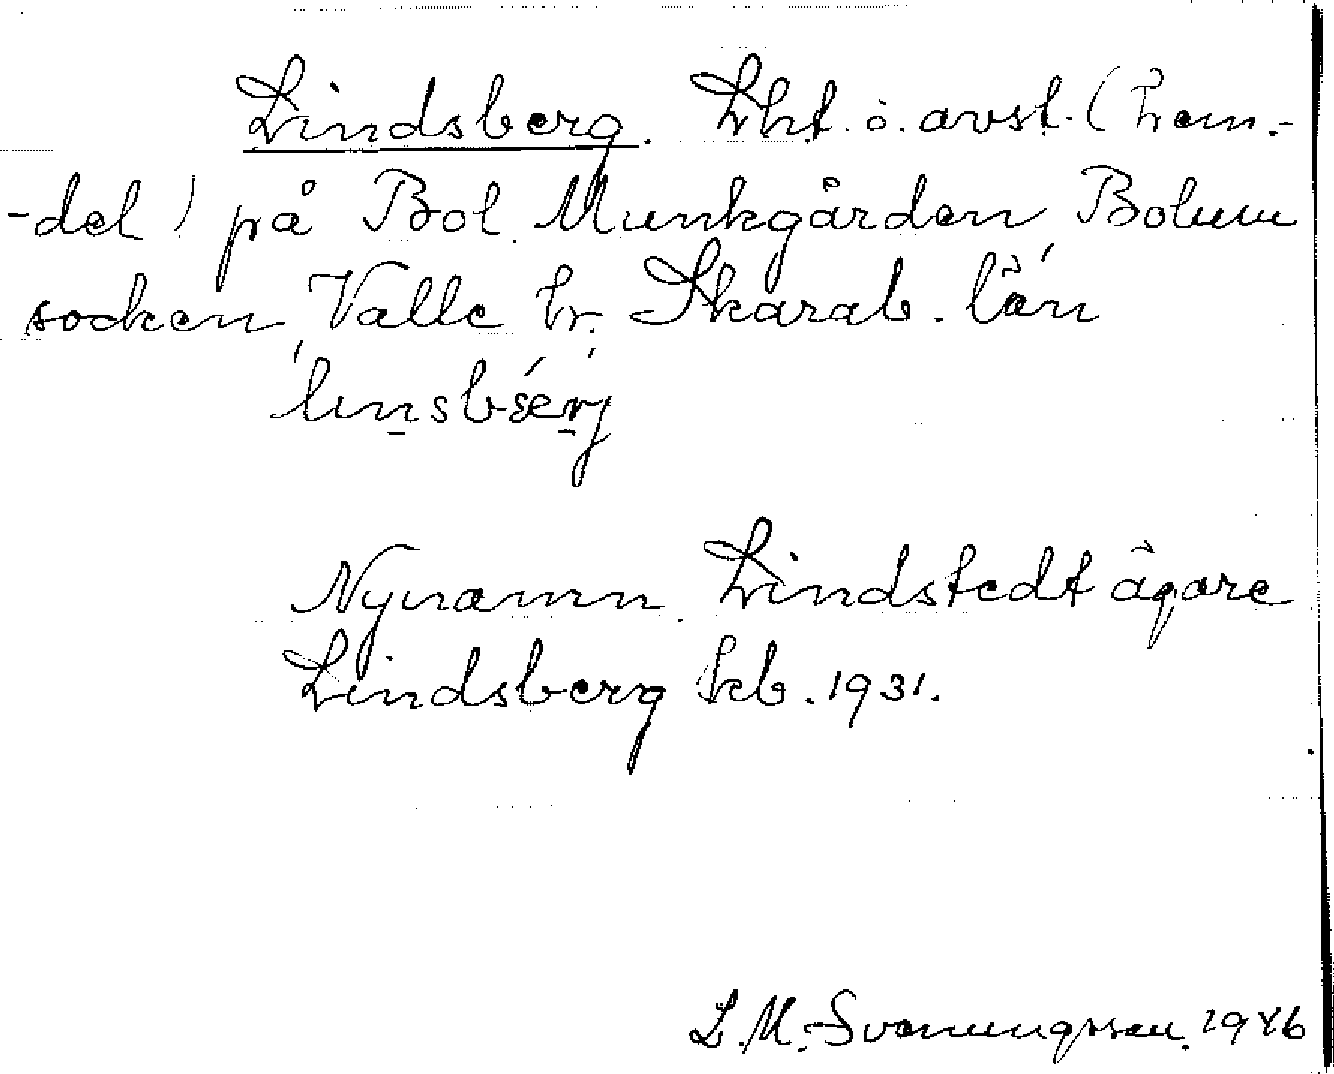 Lindsberg. Lht. o. avst. (hem.-
-del) på Bol. Munkgården, Bolum
socken, Valle hr. Skarab. län
linsbærj
Nynamn. Lindstedt ägare
Lindsberg Fkb. 1931.
L.M. Svenungsson. 1946